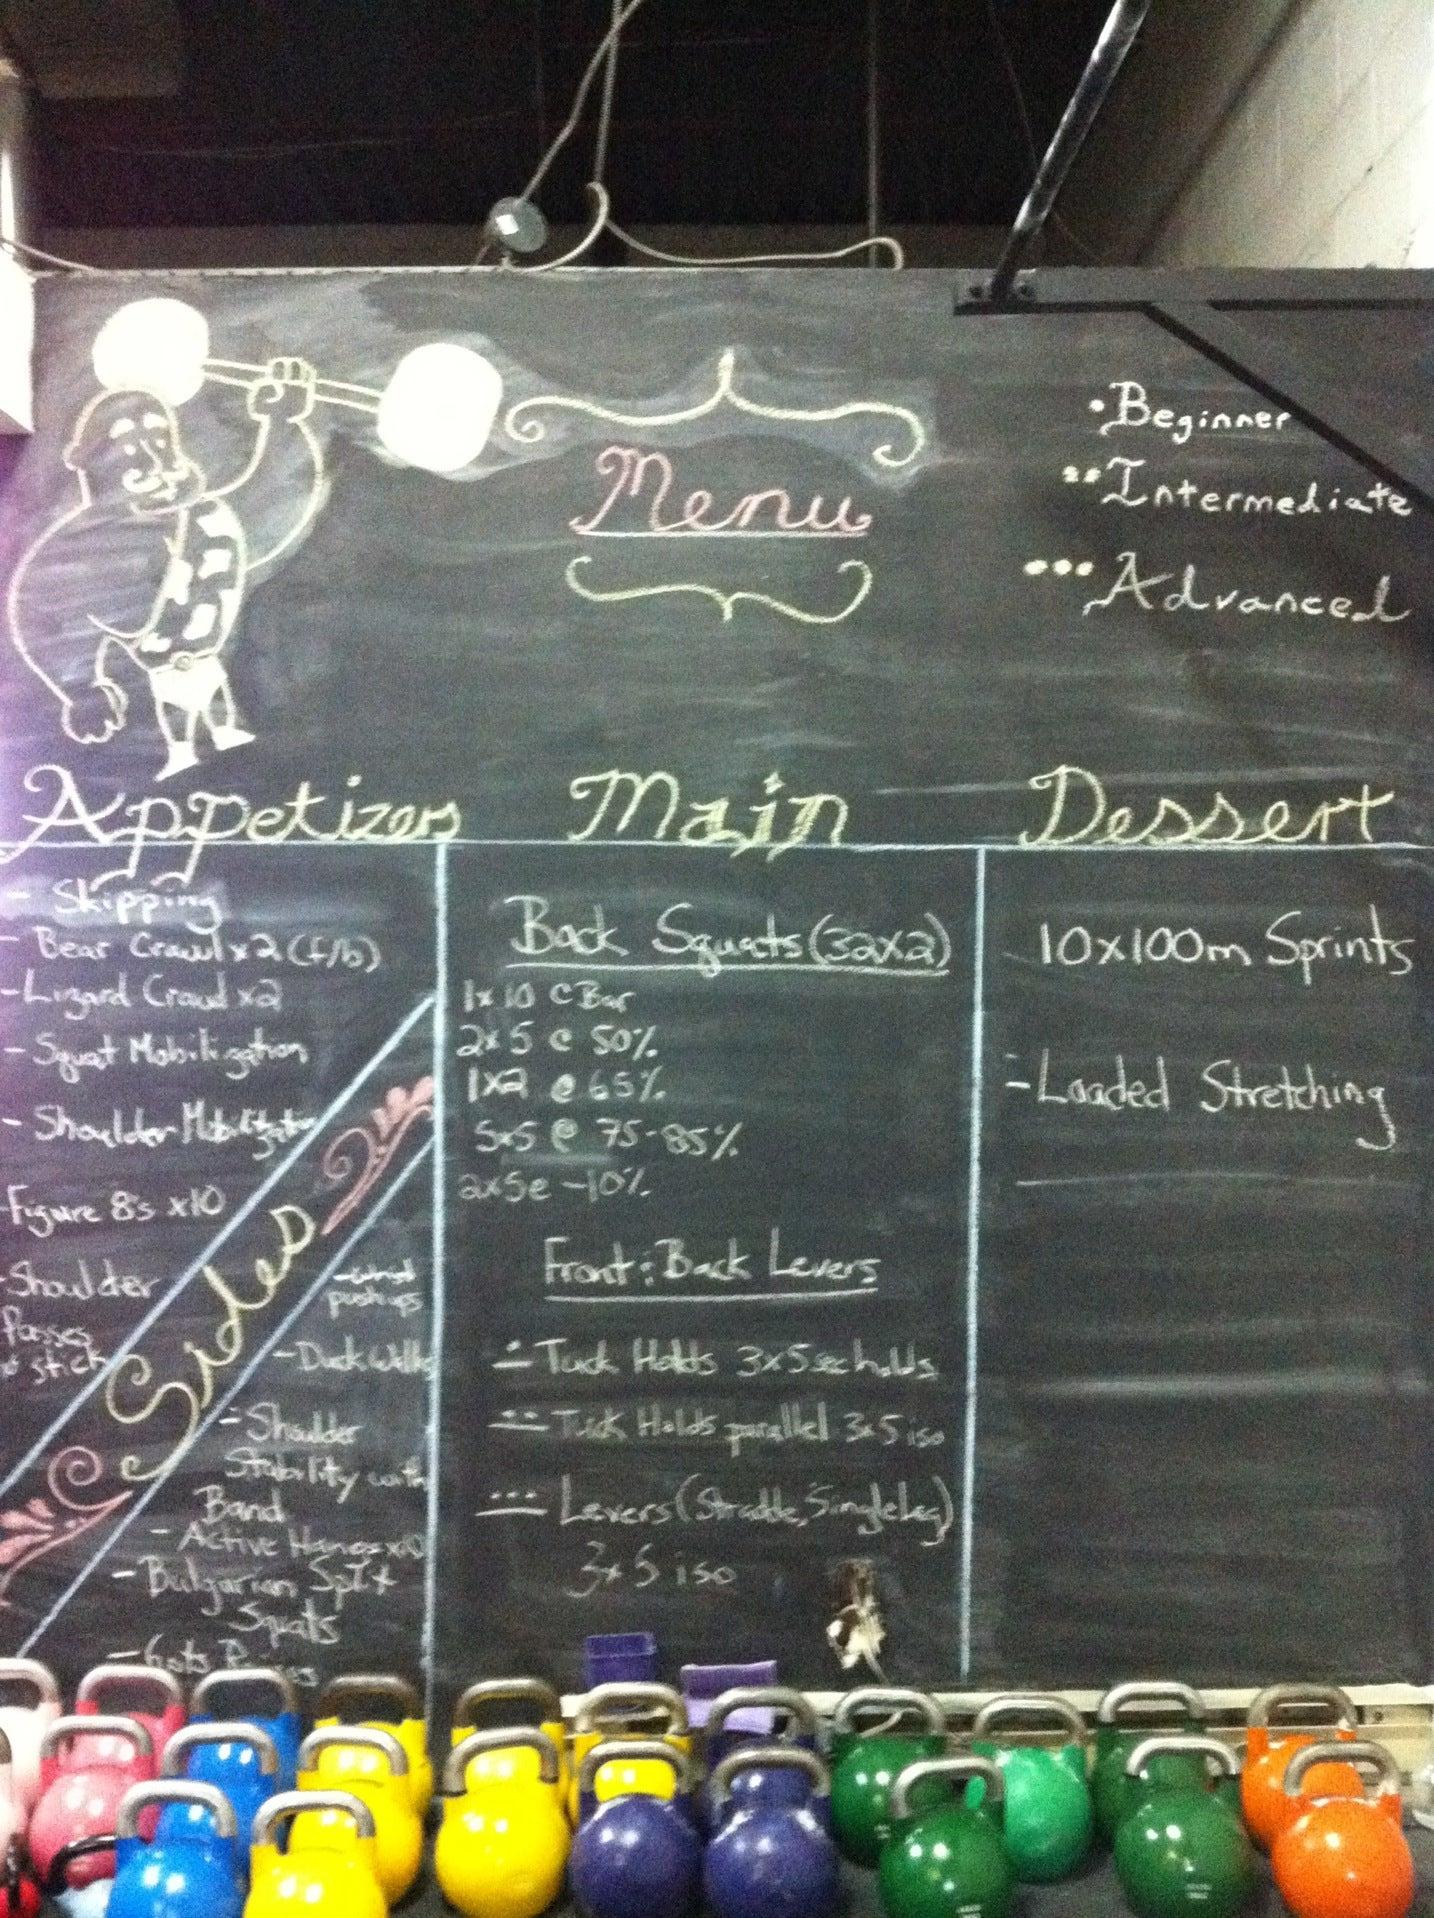 Menu
• Beginner
•• Intermediate
••• Advanced
Appetizers
- Skipping
- Bear Crawl x2 (f/b)
- Lizard Crawl x2
- Squat Mobilization
- Shoulder Mobilization
- Figure 8's x10
- Shoulder
Passes
stick
Sides
pushups
- Duck Walks
- Shoulder
Stability with
Band
- Active Hangs x10
- Bulgarian Split
Squats
Main
Back Squats (32X2)
1x10 @ Bar
2x5 @ 50%
1x2 @ 65%
5x5 @ 75-85%
2x5@ -10%
Front : Back Levers
• Tuck Holds 3x5 sec holds
•• Tuck Holds parallel 3x5 iso
••• Levers (Straddle, Single Leg)
3x5 iso
Dessert
10x100m Sprints
- Loaded Stretching